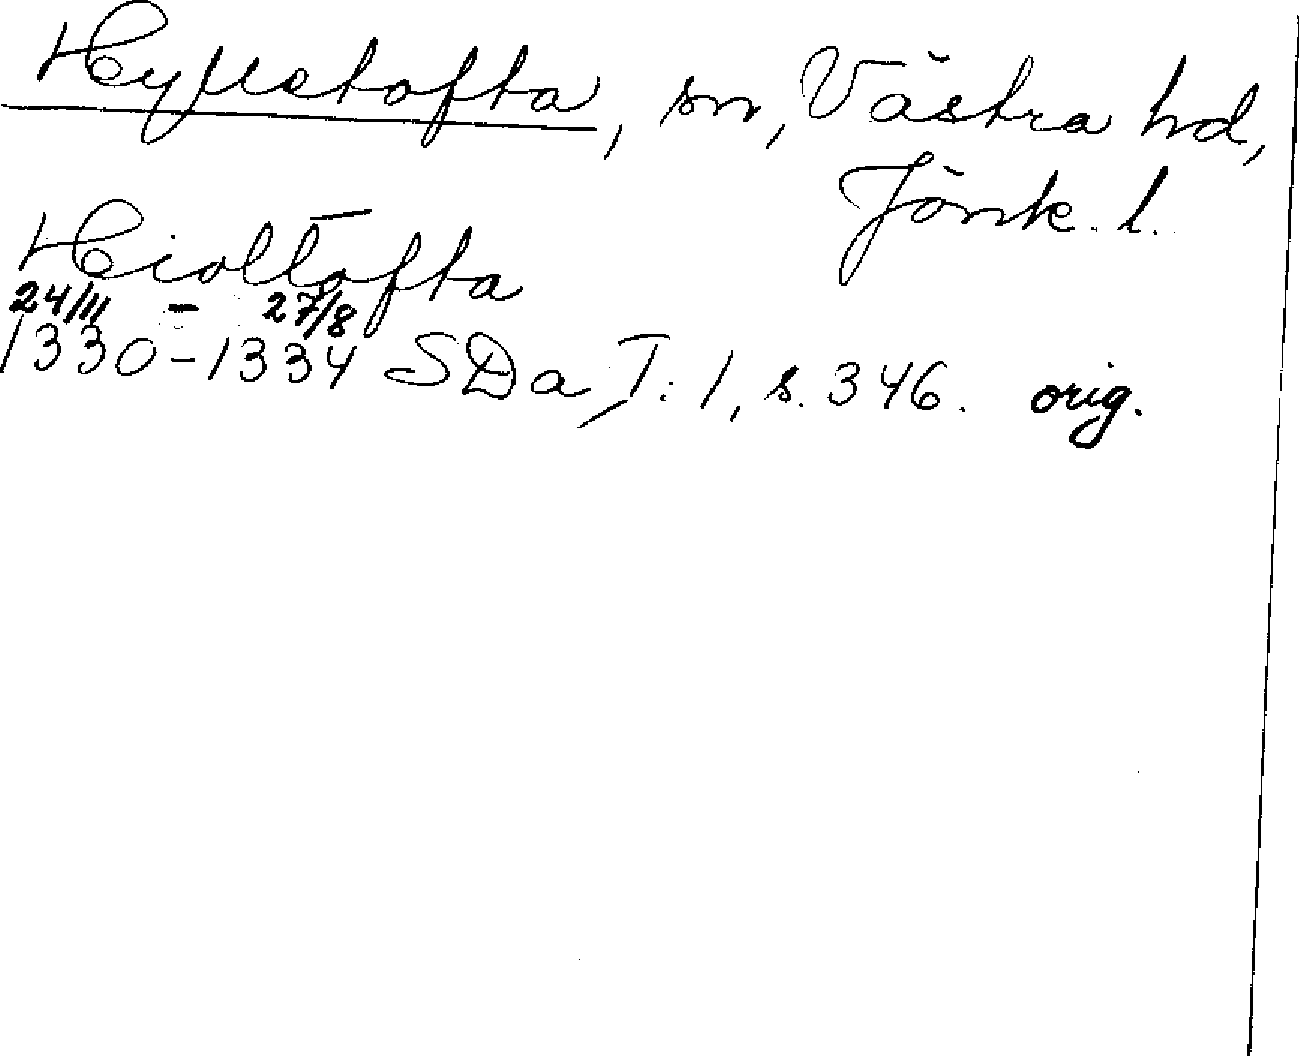 Hylletofta, sn, Västra hd,
Jönk. l.
Hioltofta
24/11 - 27/8
1330-1334 SDa, I: 1, s. 346. orig.